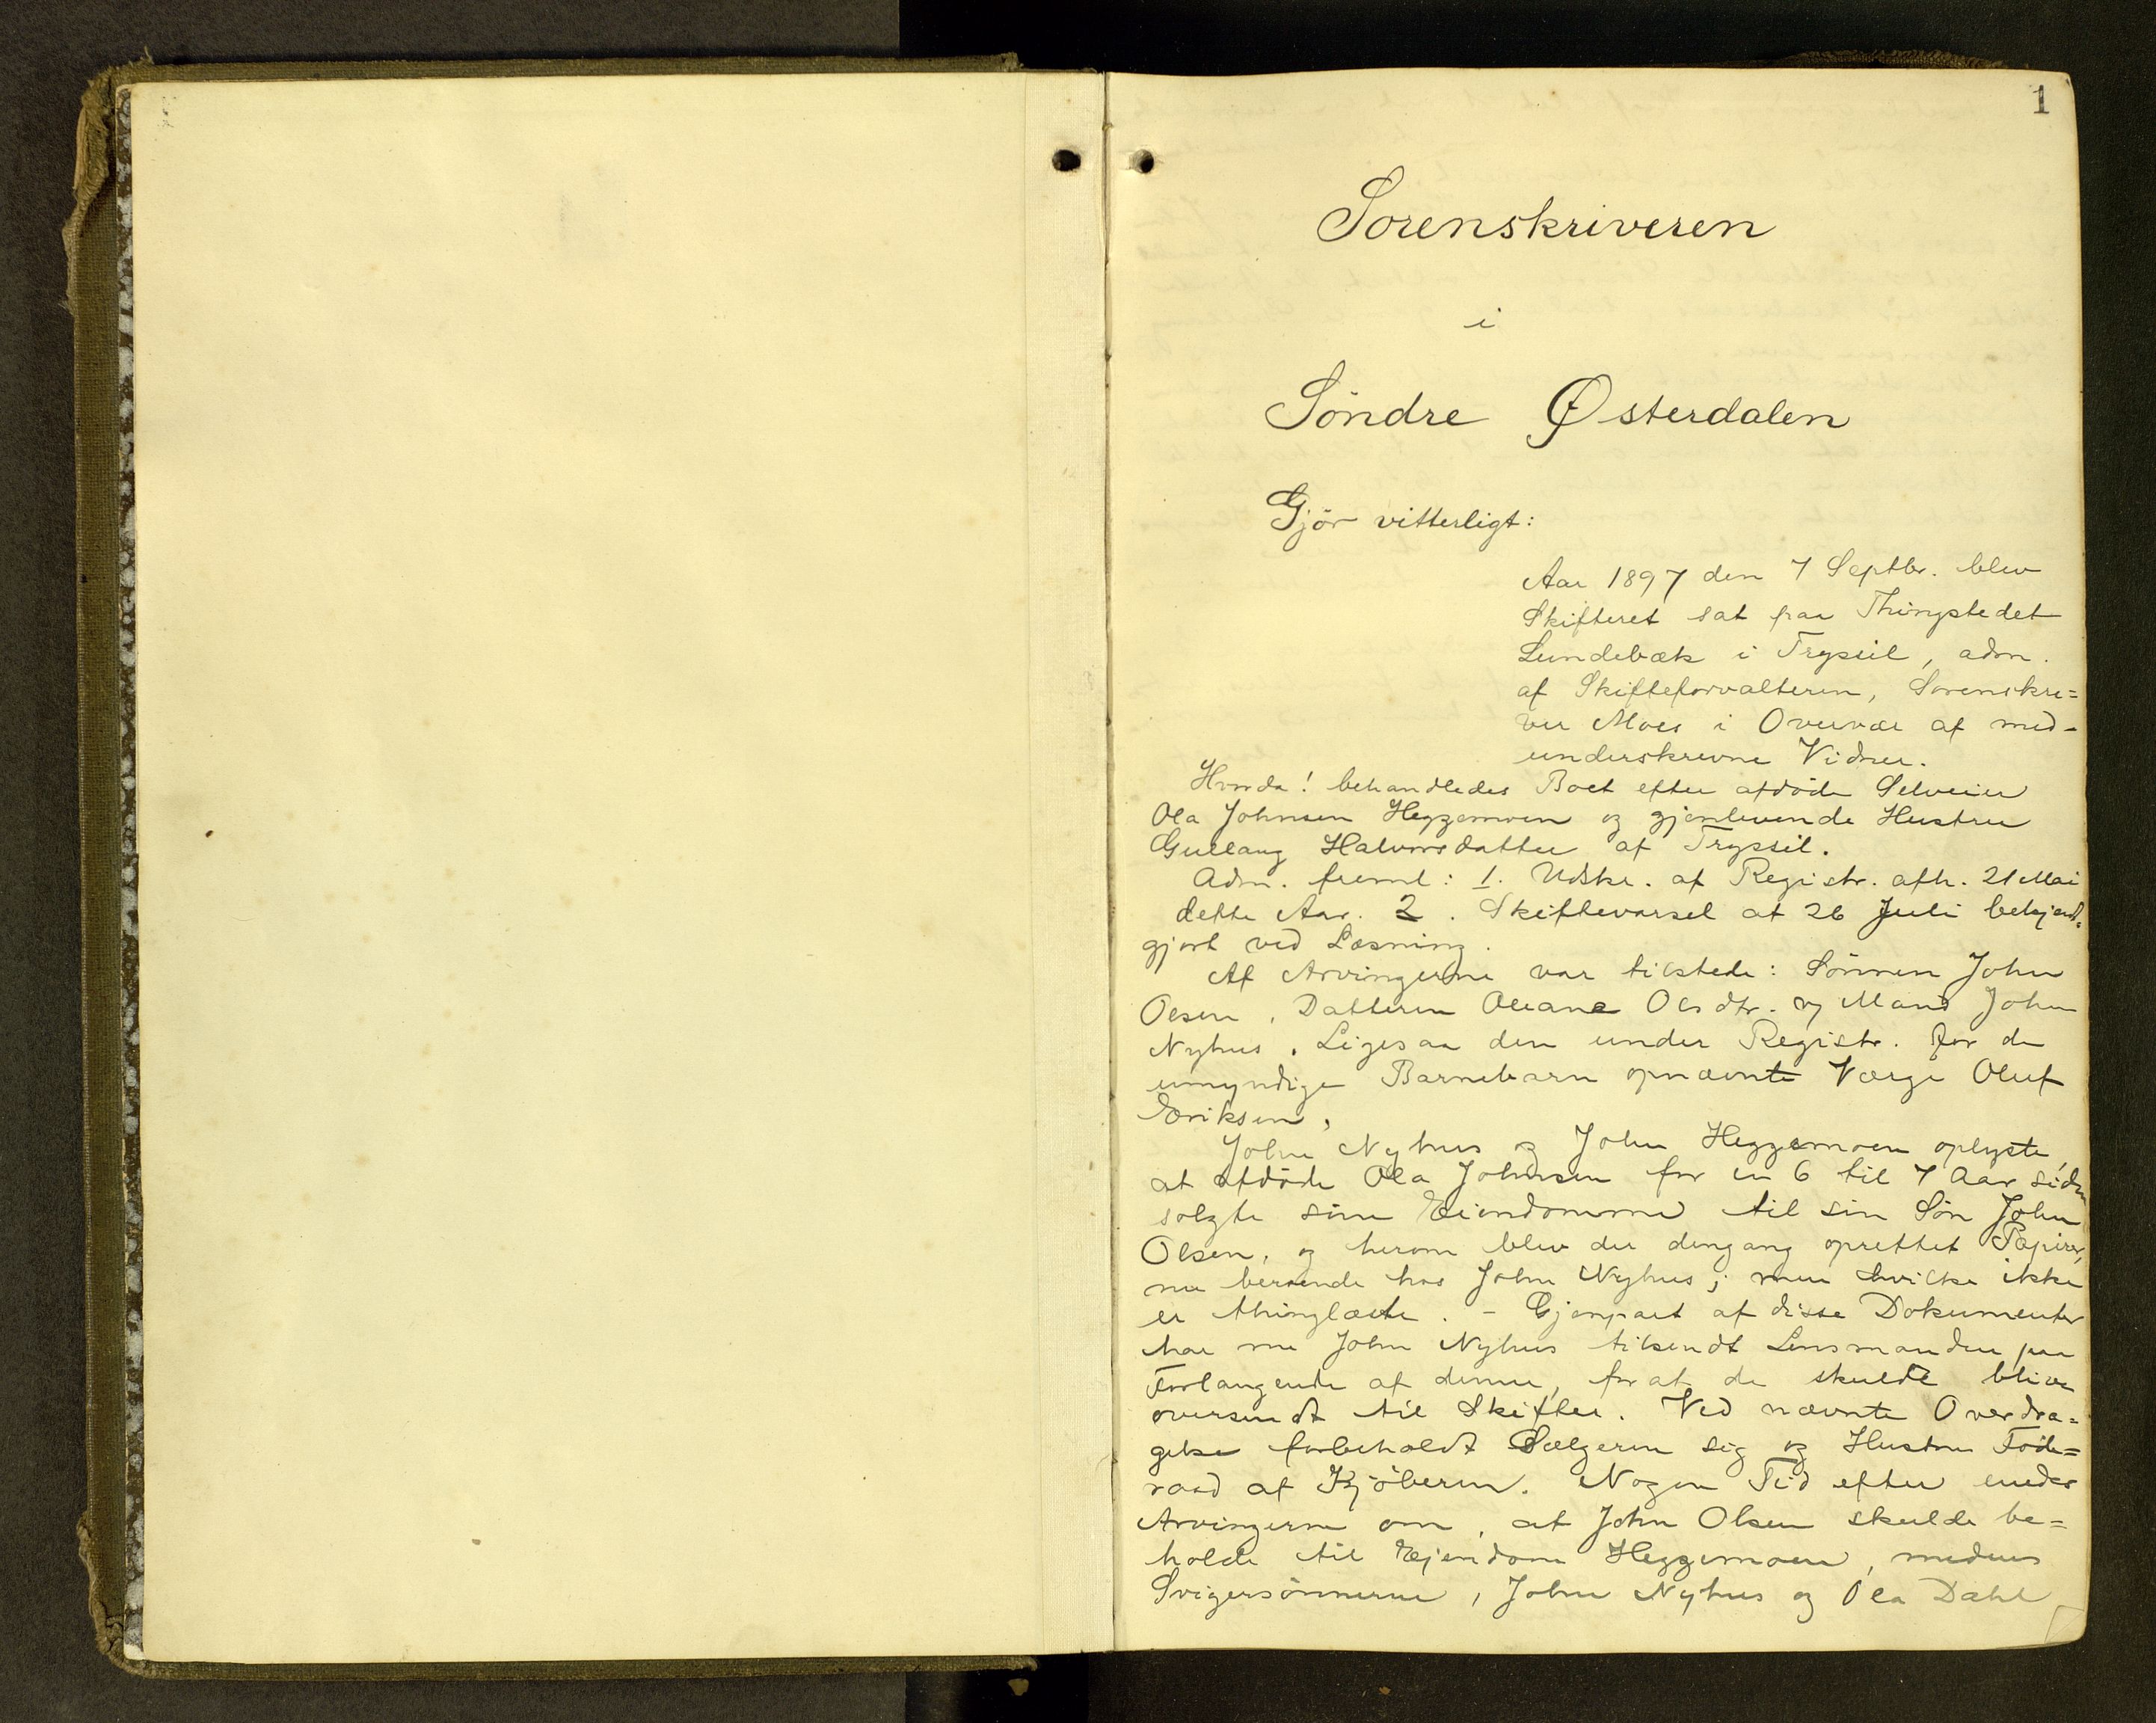 1
Sorenskriveren
i
Söndre Østerdalen
Gjör vitterligt:
Aar 1897 den 7 Septbr. blev
Skifteret sat paa Thingstedet
Lundebæk i Trysil, adm.
af Skifteforvalteren, Sorenskri=
ver Moes i Overvær af med-
underskrevne Vidner.
Hvorda! behandledes Boet efter afdöde Selveier
Ola Johnsen Heggemoen og gjenlevende Hustru
Gullaug Halvorsdatter af Tryssil.
Adm. freml: 1. Udskr. af Registr. afh. 21 Mai
dette Aar. 2. Skiftevarsel af 26 Juli bekjendt=
gjort ved Læsning.
Af Arvingerne var tilstede: Sönnen John
Olsen, Datteren Oleane Olsdtr. og Mand John
Nyhus. Ligesaa den under Registr. for de
umyndige Barnebarn opnævnte Værge Oluf
Eriksen.
John Nyhus og John Heggemoen oplyste,
at afdöde Ola Johnsen for en 6 til 7 Aar siden
solgte sine Eiendomme til sin Sön John
Olsen, og herom blev der dengang oprettet Papirer,
nu beroende hos John Nyhus; men hvilke ikke
er thinglæste. - Gjenpart af disse Dokumenter
har nu John Nyhus tilsendt Lensmanden paa
Forlangende af denne, for at de skulde blive
oversendt til Skifter. Ved nævnte Overdra=
gelse forbeholdt Sælgeren sig og Hustru Föde=
raad af Kjöberen. Nogen Tid efter enedes
Arvingerne om, at John Olsen skulde be=
holde til Ejendom Heggemoen, medens
Svigersönnerne, John Nyhus og Ola Dahl